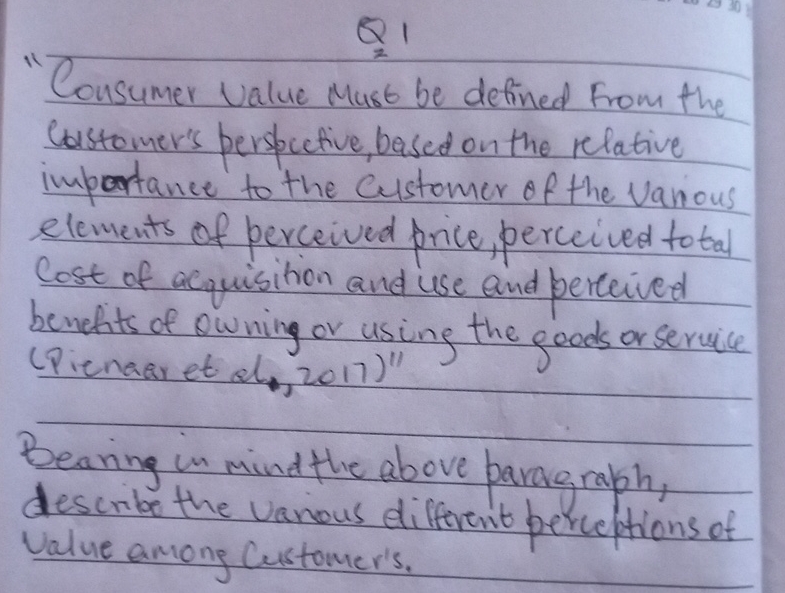 28 29 30
Q1
"Consumer Value Must be defined From the
Customer's perspective, based on the relative
importance to the Customer of the Various
elements of perceived price, perceived total
Cost of acquisition and use and perceived
benefits of owning or using the goods or service
(Pienaar et al., 2017)"
Bearing in mind the above paragraph,
describe the various different perceptions of
Value among Customer's.